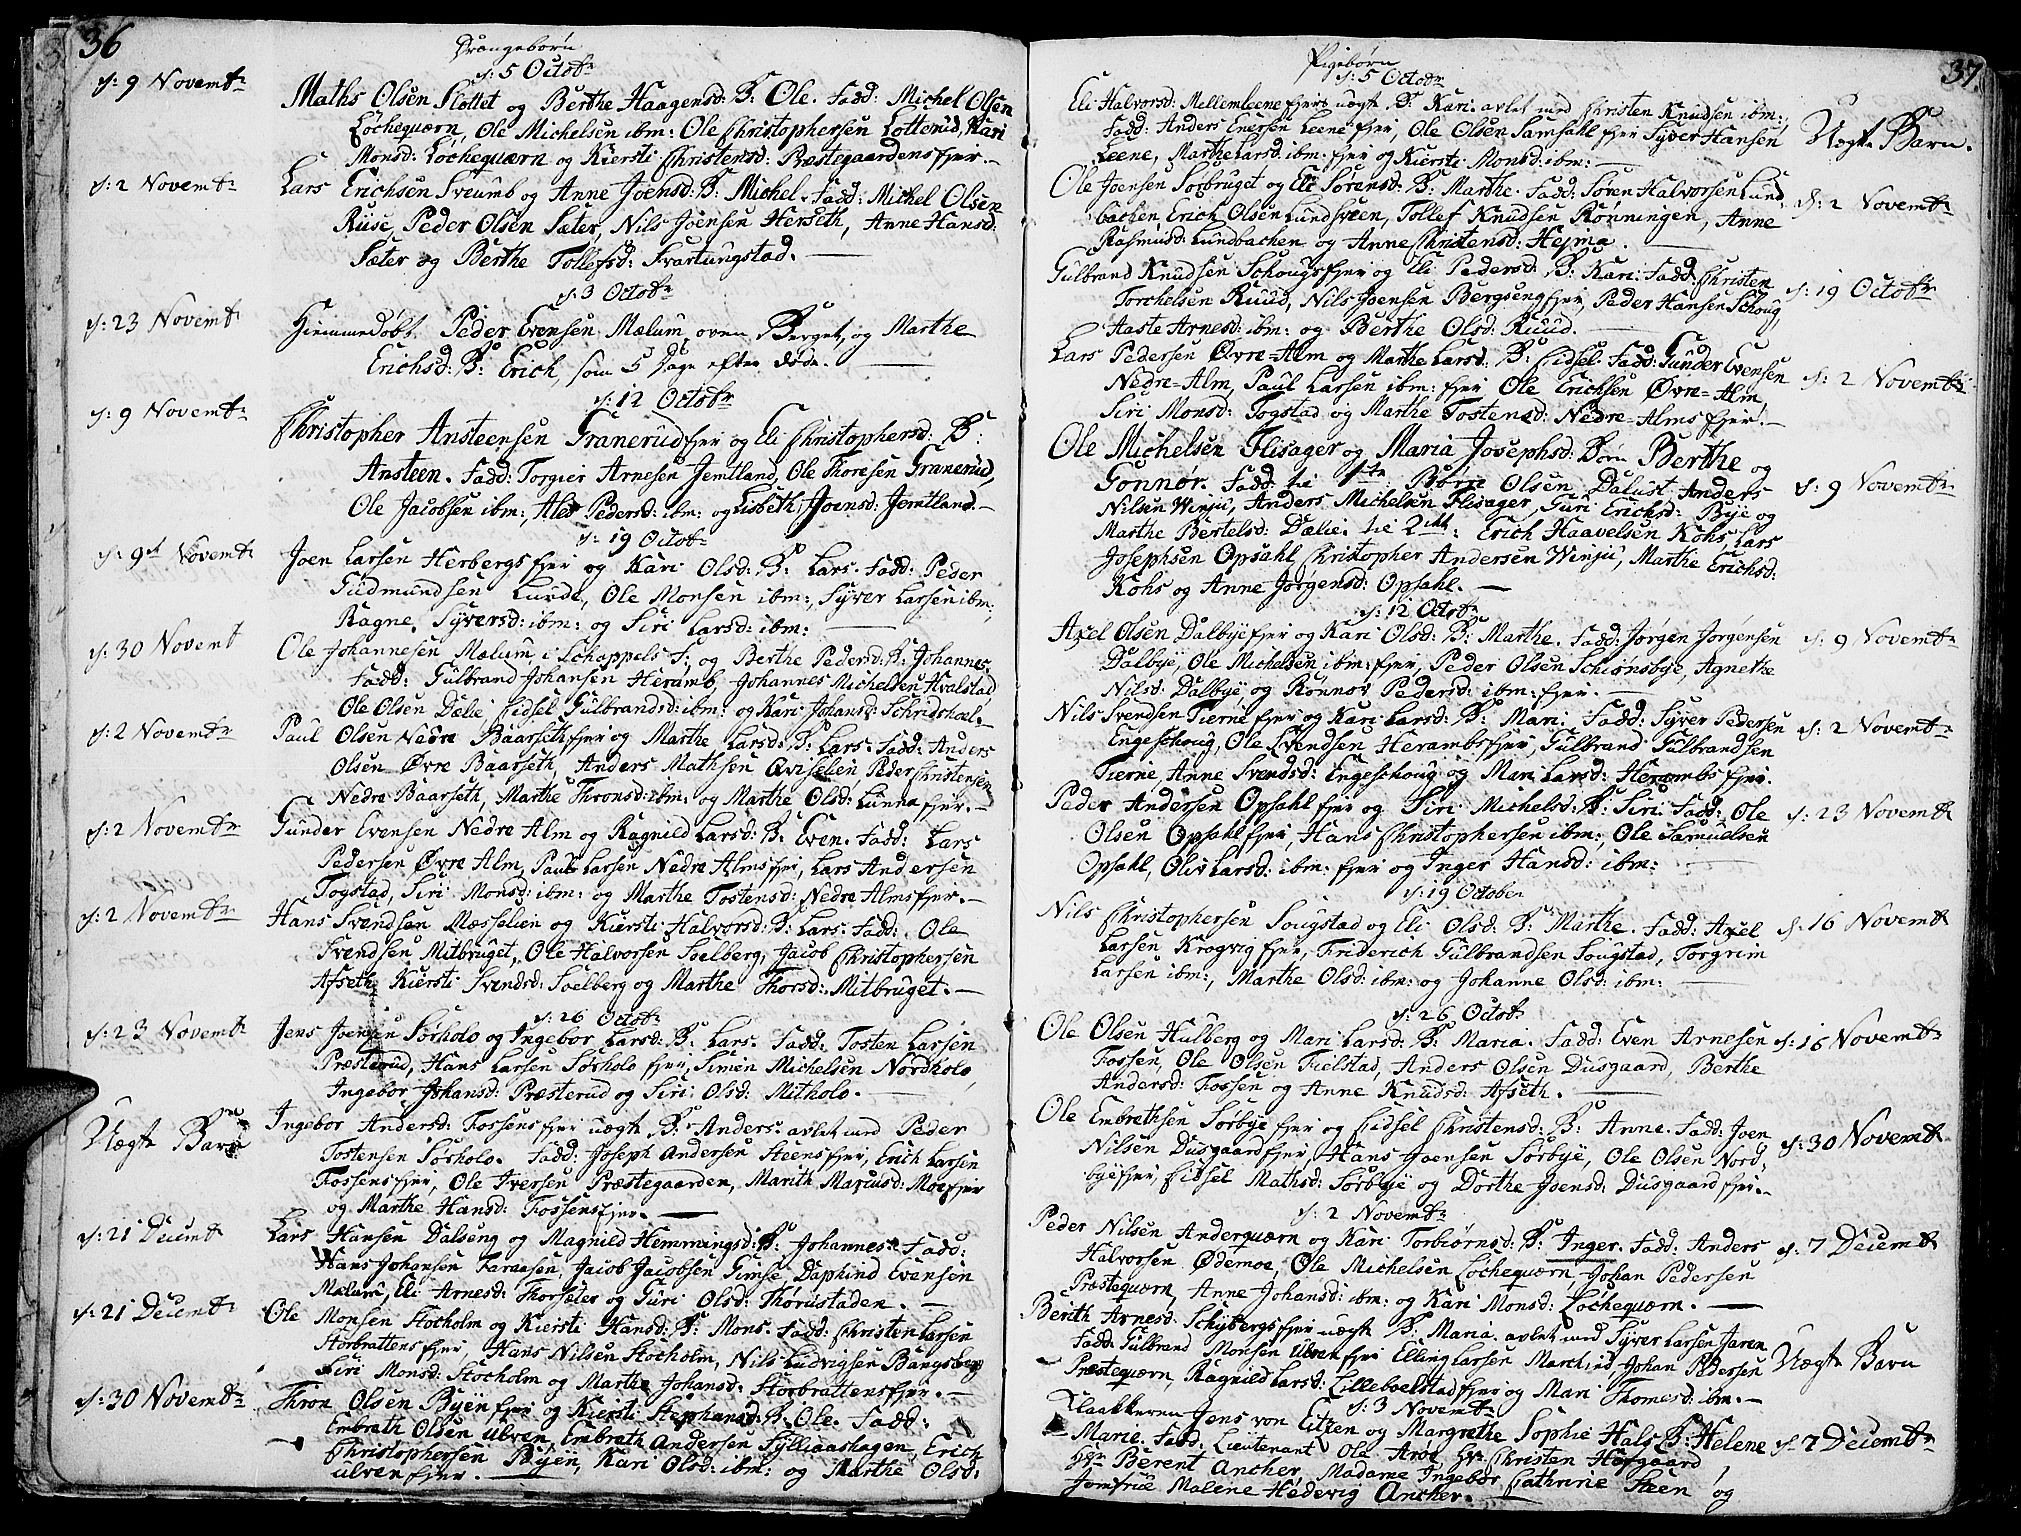 36
Drengebørn
d: 5 Octobr
d: 9 Novembr
Maths Olsen Slottet og Berthe Haagensd: B: Ole. Fadd: Michel Olsen
Løchequærn, Ole Michelsen ibm: Ole Christophersen Lotterud, Kari
Monsd: Løchequærn og Kiersti Christensd: Præstegaardensfjer.
d: 2 Novembr
Lars Erichsen Sveumb og Anne Joensd: B: Michel. Fadd: Michel Olsen
Ruse, Peder Olsen Sæter, Nils Joensen Herseth, Anne Hansd:
Sæter og Berthe Tollefsd: Svartungstad.
d: 3 Octobr
d: 23 Novembr
Hiemmedøbt Peder Evensen Mælum, oven Berget, og Marthe
Erichsd: B: Erich, som 5 Dage efter døde.
d: 12 Octobr
d: 9 Novembr
Christopher Ansteensen Granerudfjer og Eli Christophersd: B:
Ansteen. Fadd: Torgier Arnesen Jemtland, Ole Thoresen Granerud,
Ole Jacobsen ibm:, Aled Pedersd: ibm: og Lisbeth Joensd: Jemtland.
d: 19 Octobr
d: 9d Novembr
Joen Larsen Herbergsfjer og Kari Olsd: B: Lars. Fadd: Peder
Gudmundsen Lunde, Ole Monsen ibm:, Syver Larsen ibm:,
Ragne Syversd: ibm: og Siri Larsd: ibm:
d: 30 Novembr
Ole Johannesen Mælum, i Schappels S:, og Berthe Pedersd: B: Johannes.
Fadd: Gulbrand Johansen Heramb, Johannes Michelsen Hvalstad,
Ole Olsen Dælie, Eidsel Gulbrandsd: ibm: og Kari Johansd: Schridshoel.
d: 2 Novembr
Paul Olsen Nedre Baarsethfjer og Marthe Larsd: B: Lars. Fadd: Anders
Olsen Øvre Baarseth, Anders Mathsen Qviselien Peder Christensen
Nedre Baarseth, Marthe Thronsd: ibm: og Marthe Olsd: Lunnafjer.
d: 2 Novembr
Gunder Evensen Nedre Alm og Ragnild Larsd: B: Even. Fadd: Lars
Pedersen Øvre Alm, Paul Larsen Nedre Almsfjer, Lars Andersen
Togstad, Siri Monsd: ibm: og Marthe Tostensd: Nedre Almsfjer.
d: 2 Novembr
Hans Svendsen Mæsselien og Kiersti Halvorsd: B: Lars. Fadd: Ole
Svendsen Mitbruget, Ole Halvorsen Soelberg, Jacob Christophersen
Afseth, Kiersti Svendsd: Soelberg og Marthe Thorsd: Mitbruget.
d: 26 Octobr
d: 23 Novembr
Jens Joensen Sørholo og Ingebor Larsd: B: Lars. Fadd: Tosten Larsen
Præsterud, Hans Larsen Sørholo fjer, Simen Michelsen Nordholo,
Ingebor Johansd: Præsterud og Siri Olsd: Mitholo.
Uægte Barn
Ingebor Andersd: Fossensfjer uægte B: Anders avlet med Peder
Tostensen Sørholo. Fadd: Joseph Andersen Steensfjer, Erich Larsen
Fossensfjer, Ole Iversen Præstegaarden, Marith Mariusd: Moefjer
og Marthe Hansd: Fossensfjer.
d: 21 Decembr
Lars Hansen Dalseng og Magnild Hemmingsd: B: Johannes. Fadd:
Hans Johansen Faraasen, Jacob Jacobsen Gimse, Daphind Evensen
Mælum, Eli Arnesd: Thorsæter og Guri Olsd: Thorustaden.
d: 21 Decembr
Ole Monsen Stocholm og Kiersti Hansd: B: Mons. Fadd: Christen Larsen
Storbrattensfjer, Hans Nilsen Stocholm, Nils Ludvigsen Bangsberg
Siri Monsd: Stocholm og Marthe Johansd: Storbrattensfjer.
d: 30 Novembr
Thron Olsen Byenfjer og Kiersti Stephansd: B: Ole. Fadd:
Embreth Olsen Ulven, Embreth Andersen Sylliaashagen, Erich
Christophersen Byen, Kari Olsd: ibm: og Marthe Olsd:
Ulvenfjer.
37.
Pigebørn
d: 5 Octobr
Eli Halvorsd: Mellemleenefjers uægte B: Kari. avlet med Christen Knudsen ibm:,
Fadd: Anders Enersen Leene fjer, Ole Olsen Samsahl fjer Syver Hansen
Leene, Marthe Larsd: ibm: fjer og Kiersti Monsd: ibm:
Uægte Barn.
Ole Joensen Sorbruget og Eli Sørensd: B: Marthe. Fadd: Søren Halvorsen Lund-
bachen, Erich Olsen Lundsveen, Tollef Knudsen Rønningen, Anne
Rasmusd: Lundbachen og Anne Christensd: Hejma.
d: 2 Novembr
Gulbrand Knudsen Schougsfjer og Eli Pedersd: B: Kari. Fadd: Christen
Torchelsen Ruud, Nils Joensen Bergsengfjer, Peder Hansen Schoug,
Aaste Arnesd: ibm: og Berthe Olsd: Ruud.
d: 19 Octobr
Lars Pedersen Øvre=Alm og Marthe Larsd: B: Eidsel. Fadd: Gunder Evensen
Nedre=Alm, Paul Larsen ibm: fjer Ole Erichsen Øvre=Alm,
Siri Monsd: Togstad og Marthe Tostensd: Nedre=Almsfjer.
d: 2 Novembr
Ole Michelsen Flisager og Maria Josephsd: Børn Berthe og
Gonnor. Fadd: til 1ste Børre Olsen Dalust, Anders
Nilsen Winju, Anders Michelsen Flisager, Guri Erichsd: Bye og
Marthe Bertelsd: Dælie: til 2det: Erich Haavelsen Kohs, Lars
Josephsen Opsahl, Christopher Andersen Winju, Marthe Erichsd:
Kohs og Anne Jørgensd: Opsahl.
d: 9 Novembr
d: 12 Octobr
Axel Olsen Dalbyefjer og Kari Olsd: B: Marthe. Fadd: Jørgen Jørgensen
Dalbye, Ole Michelsen ibm: fjer, Peder Olsen Schiønsbye, Agnethe
Nilsd: Dalbye og Rønnov Pedersd: ibm: fjer.
d: 9 Novembr
Nils Svendsen Tierne fjer og Kari Larsd: B: Mari. Fadd: Syver Pedersen
Engeschoug, Ole Svendsen Herambsfjer, Gulbrand Gulbrandsen
Tierne, Anne Svendsd: Engeschoug og Mari Larsd: Herambsfjer.
d: 2 Novembr
Peder Andersen Opsahl fjer og Siri Michelsd: B: Siri. Fadd: Ole
Olsen Opsahl fjer, Hans Christophersen ibm:, Ole Samuelsen
Opsahl, Oliv Larsd: ibm: fjer og Inger Hansd: ibm:
d: 23 Novembr
d: 19 October
Nils Christophersen Sougstad og Eli Olsd: B: Marthe. Fadd: Axel
Larsen Krogvig fjer, Friderich Gulbrandsen Sougstad, Torgrim
Larsen ibm:, Marthe Olsd: ibm: og Johanne Olsd: ibm:
d: 16 Novembr
d: 26 Octobr
Ole Olsen Hulberg og Mari Larsd: B: Maria. Fadd: Even Arnesen
Fossen, Ole Olsen Fielstad, Anders Olsen Dusgaard, Berthe
Andersd: Fossen og Anne Knudsd: Afseth.
d: 16 Novembr
Ole Embrethsen Sørbye fjer og Eidsel Christensd: B: Anne. Fadd: Joen
Nilsen Dusgaardfjer, Hans Joensen Sørbye, Ole Olsen Nord-
byefjer, Eidsel Mathsd: Sørbye og Dorthe Joensd: Dusgaardfjer.
d: 30 Novembr
d: 2 Novembr
Peder Nilsen Anderquærn og Kari Torbiørnsd: B: Inger. Fadd: Anders
Halvorsen Ødemoe, Ole Michelsen Løchequærn, Johan Pedersen
Præstequærn, Anne Johansd: ibm: og Kari Monsd: Løchequærn.
d: 7 Decembr
Berith Arnesd: Schybergsfjer uægte B: Maria. avlet med Syver Larsen Jaren
Fadd: Gulbrand Monsen Ulvenfjer Elling Larsen Marchind, Johan Pedersen
Præstequærn, Ragnild Larsd: Lilleboelstadfjer og Mari Thomesd: ibm.
Uægte Barn
d: 3 Novembr
Klaakkeren Jens von Eitzen og Margrethe Sophie Hals B: Helene
Marie. Fadd. Lieutenant Ole Aroe Hr: Christen Hofgaard,
Hr: Berent Ancher, Madame Ingebor Cathrine Steen og
Jomfrue Malene Hedevig Ancher.
d: 7 Decembr